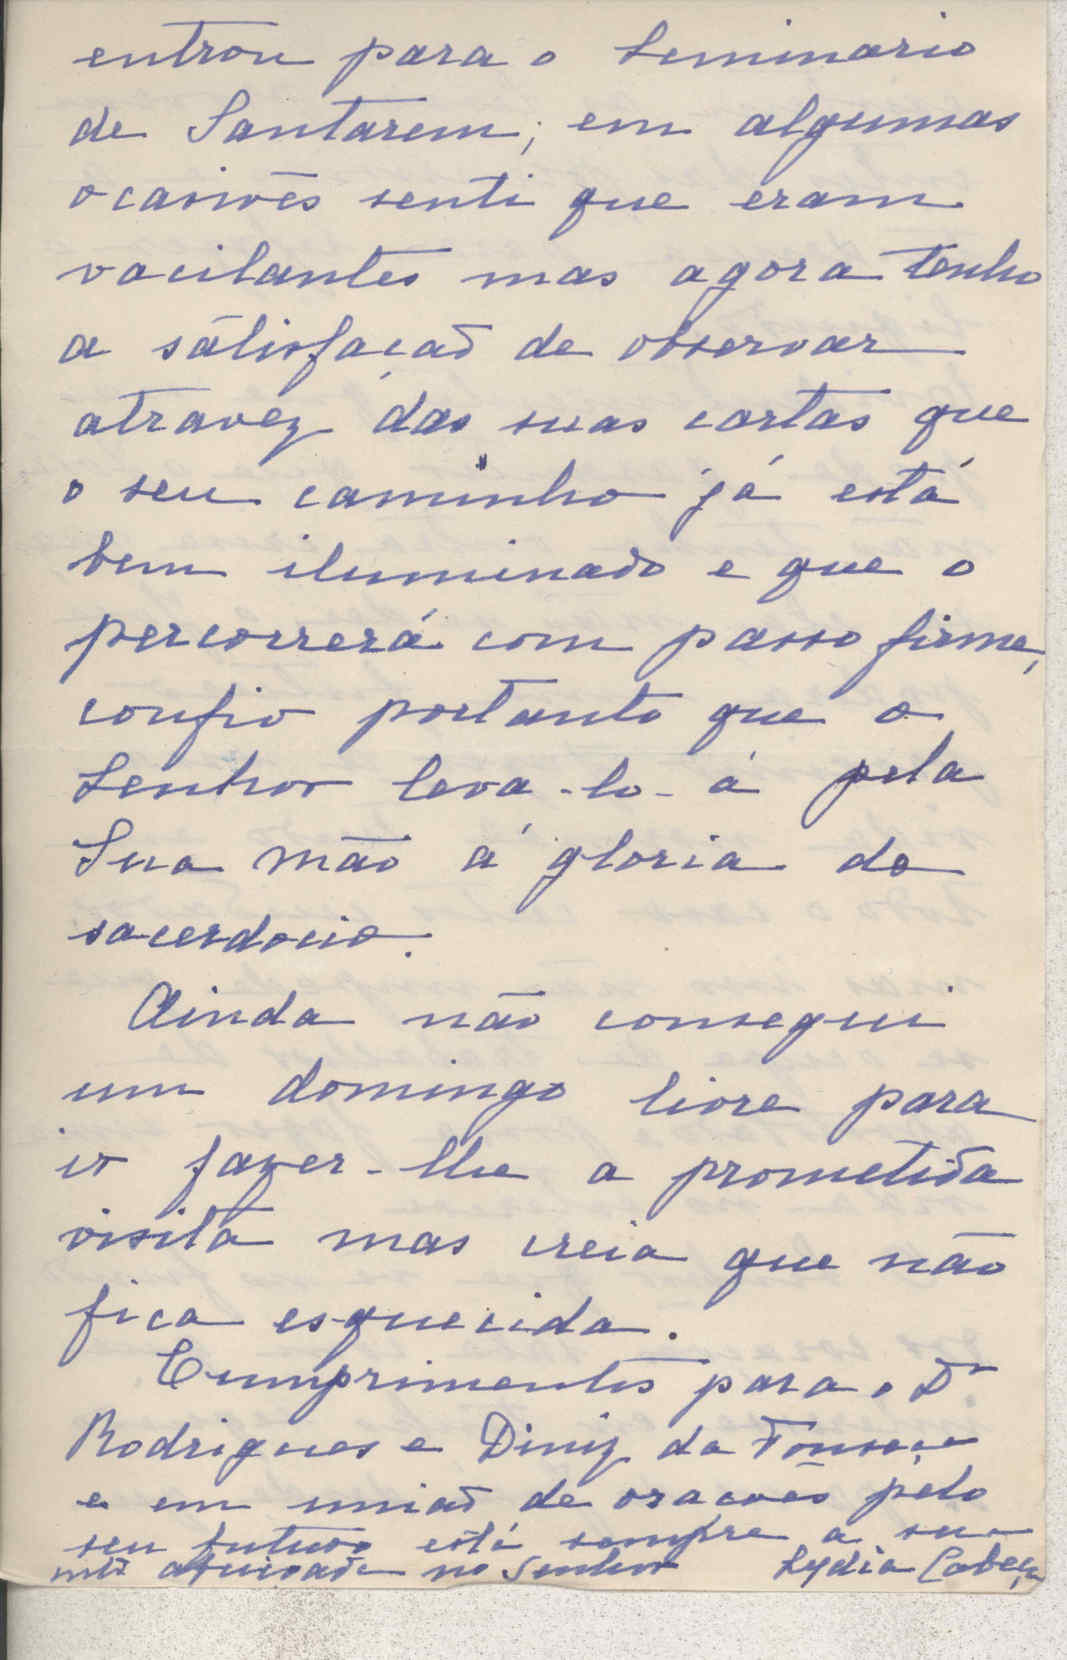 entrou para o Seminario
de Santarem; em algumas
ocasiões senti que eram
vacilantes mas agora tenho
a satisfação de observar
atravez das suas cartas que
o seu caminho já está
bem iluminado e que o
percorrerá com passo firme,
confio portanto que o
Senhor leva-lo-á pela
Sua mão á gloria do
sacerdocio.
Ainda não consegui
um domingo livre para
ir fazer-lhe a prometida
visita mas creia que não
fica esquecida.
Cumprimentos para o Dr
Rodrigues e Diniz da Fonseca
e em união de orações pelo
seu futuro está sempre a sua
mtº no Senhor Lydia Cabeça